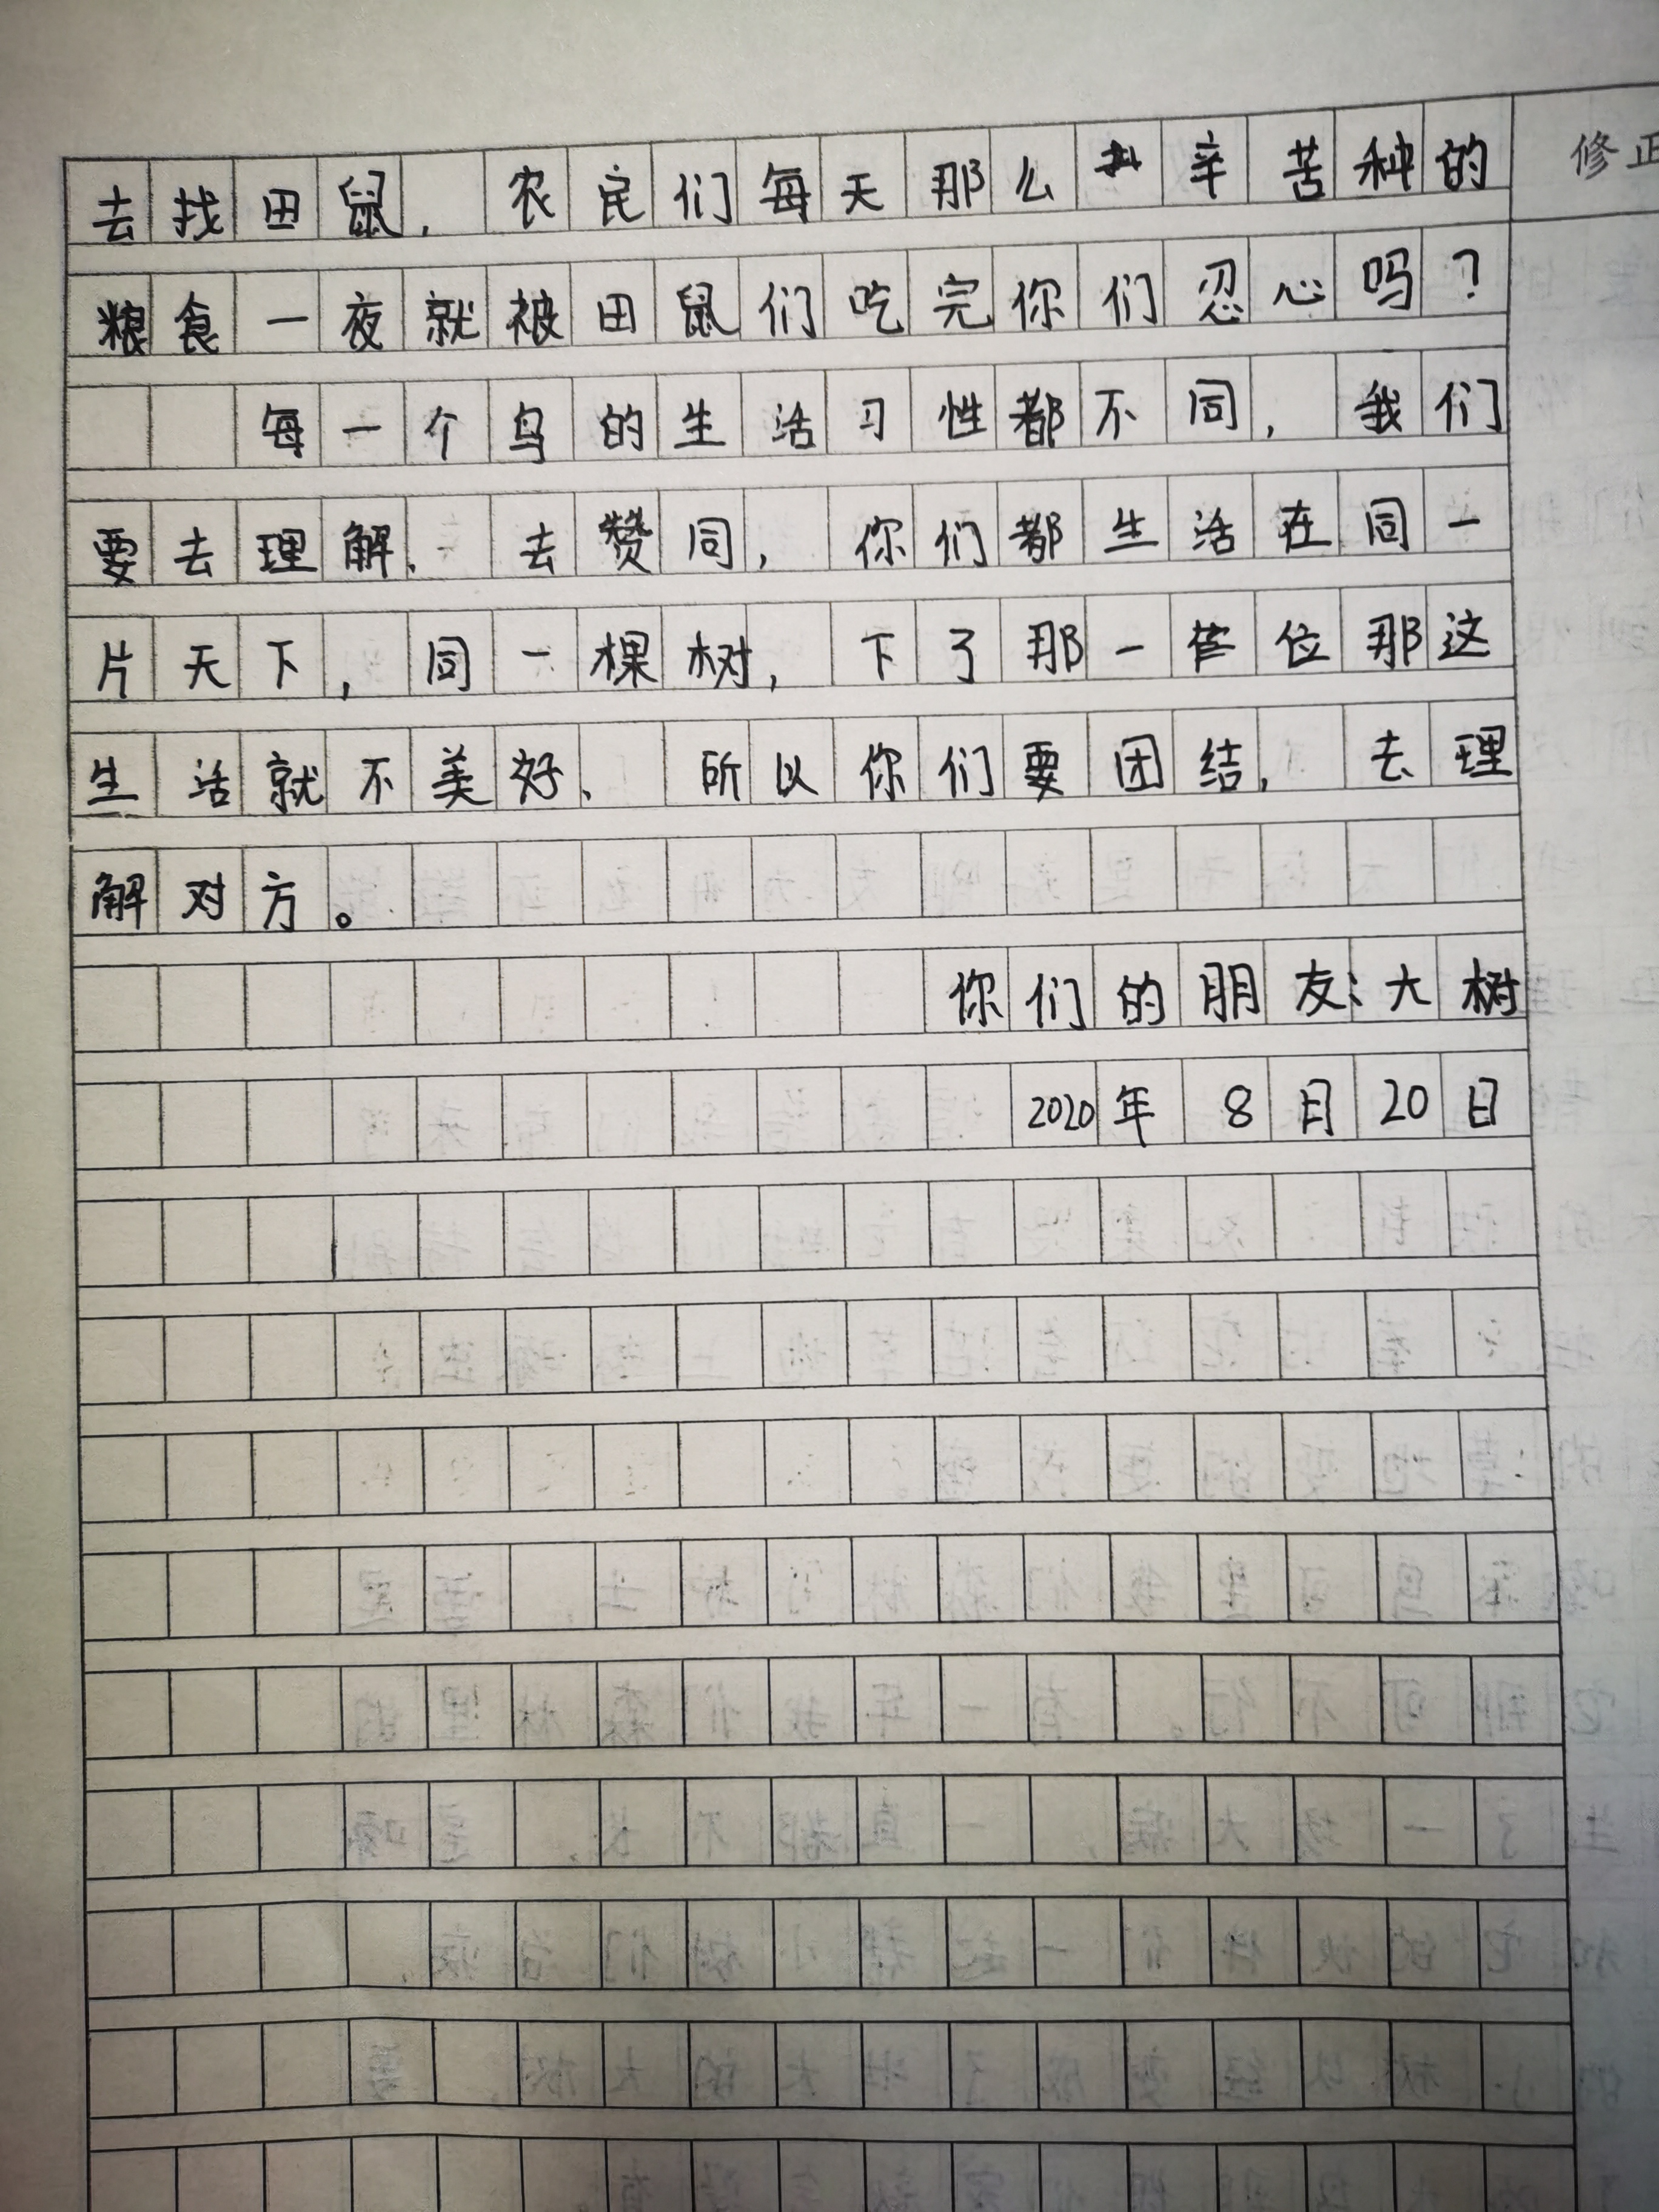 去找田鼠，农民们每天那么辛苦种的
修正
粮食一夜就被田鼠们吃完你们忍心吗？
每一个鸟的生活习性都不同，我们
要去理解、去赞同，你们都生活在同一
片天下，同一棵树，下了那一位那这
生活就不美好、所以你们要团结，去理
解对方。
你们的朋友：大树
2020年8月20日